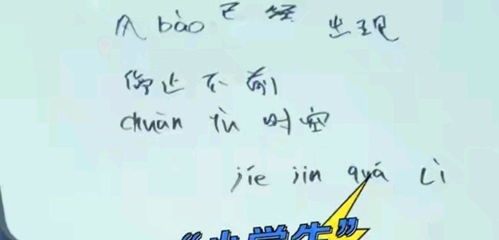 风 bào 已经 出现
停止不前
chuàn Yù 时空
jíe jìn quá Lì
“小学生”